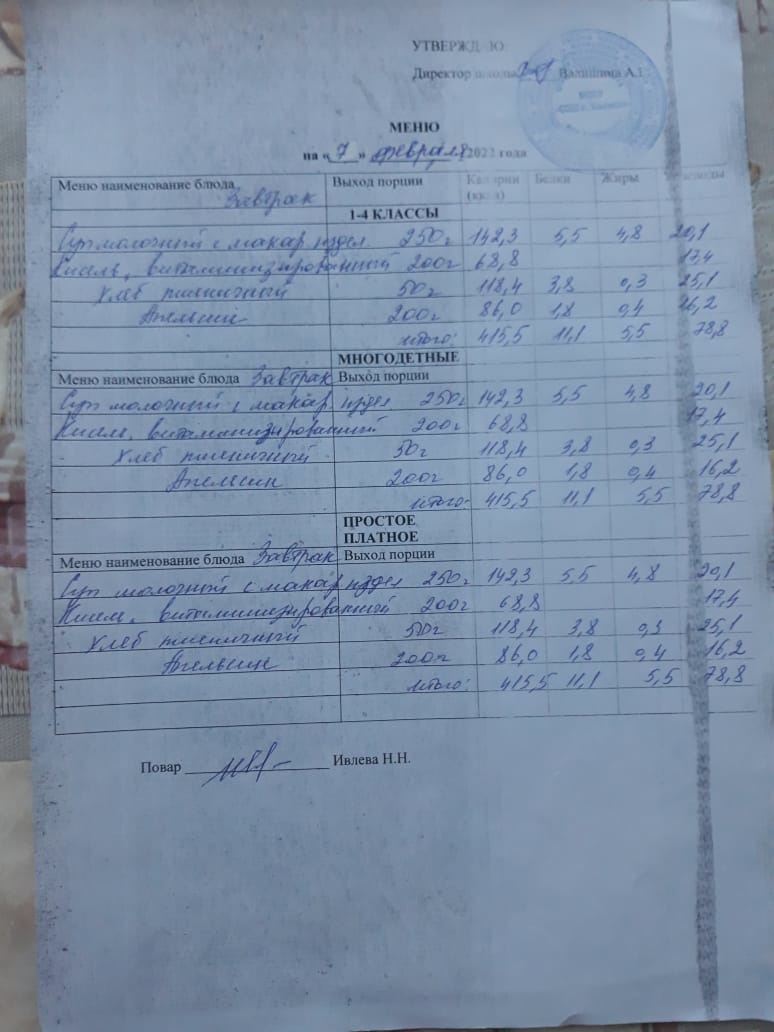 УТВЕРЖД Ю:
Директор школы Валишина А.Г.
МЕНЮ
на « 7 » февраля 2022 года
Меню наименование блюда Завтрак Выход порции Калории (ккал) Белки Жиры
1-4 КЛАССЫ
Суп молочный с макар издел 250г 142,3 5,5 4,8 20,1
Кисель витаминизированный 200г 68,8 17,4
Хлеб пшеничный 50г 118,4 3,8 0,3 25,1
Апельсин 200г 86,0 1,8 0,4 16,2
итого: 415,5 11,1 5,5 78,8
МНОГОДЕТНЫЕ
Меню наименование блюда Завтрак Выход порции
Суп молочный с макар издел 250г 142,3 5,5 4,8 20,1
Кисель витаминизированный 200г 68,8 17,4
Хлеб пшеничный 50г 118,4 3,8 0,3 25,1
Апельсин 200г 86,0 1,8 0,4 16,2
итого: 415,5 11,1 5,5 78,8
ПРОСТОЕ
ПЛАТНОЕ
Меню наименование блюда Завтрак Выход порции
Суп молочный с макар издел 250г 142,3 5,5 4,8 20,1
Кисель витаминизированный 200г 68,8 17,4
Хлеб пшеничный 50г 118,4 3,8 0,3 25,1
Апельсин 200г 86,0 1,8 0,4 16,2
итого: 415,5 11,1 5,5 78,8
Повар Ивлева Н.Н.